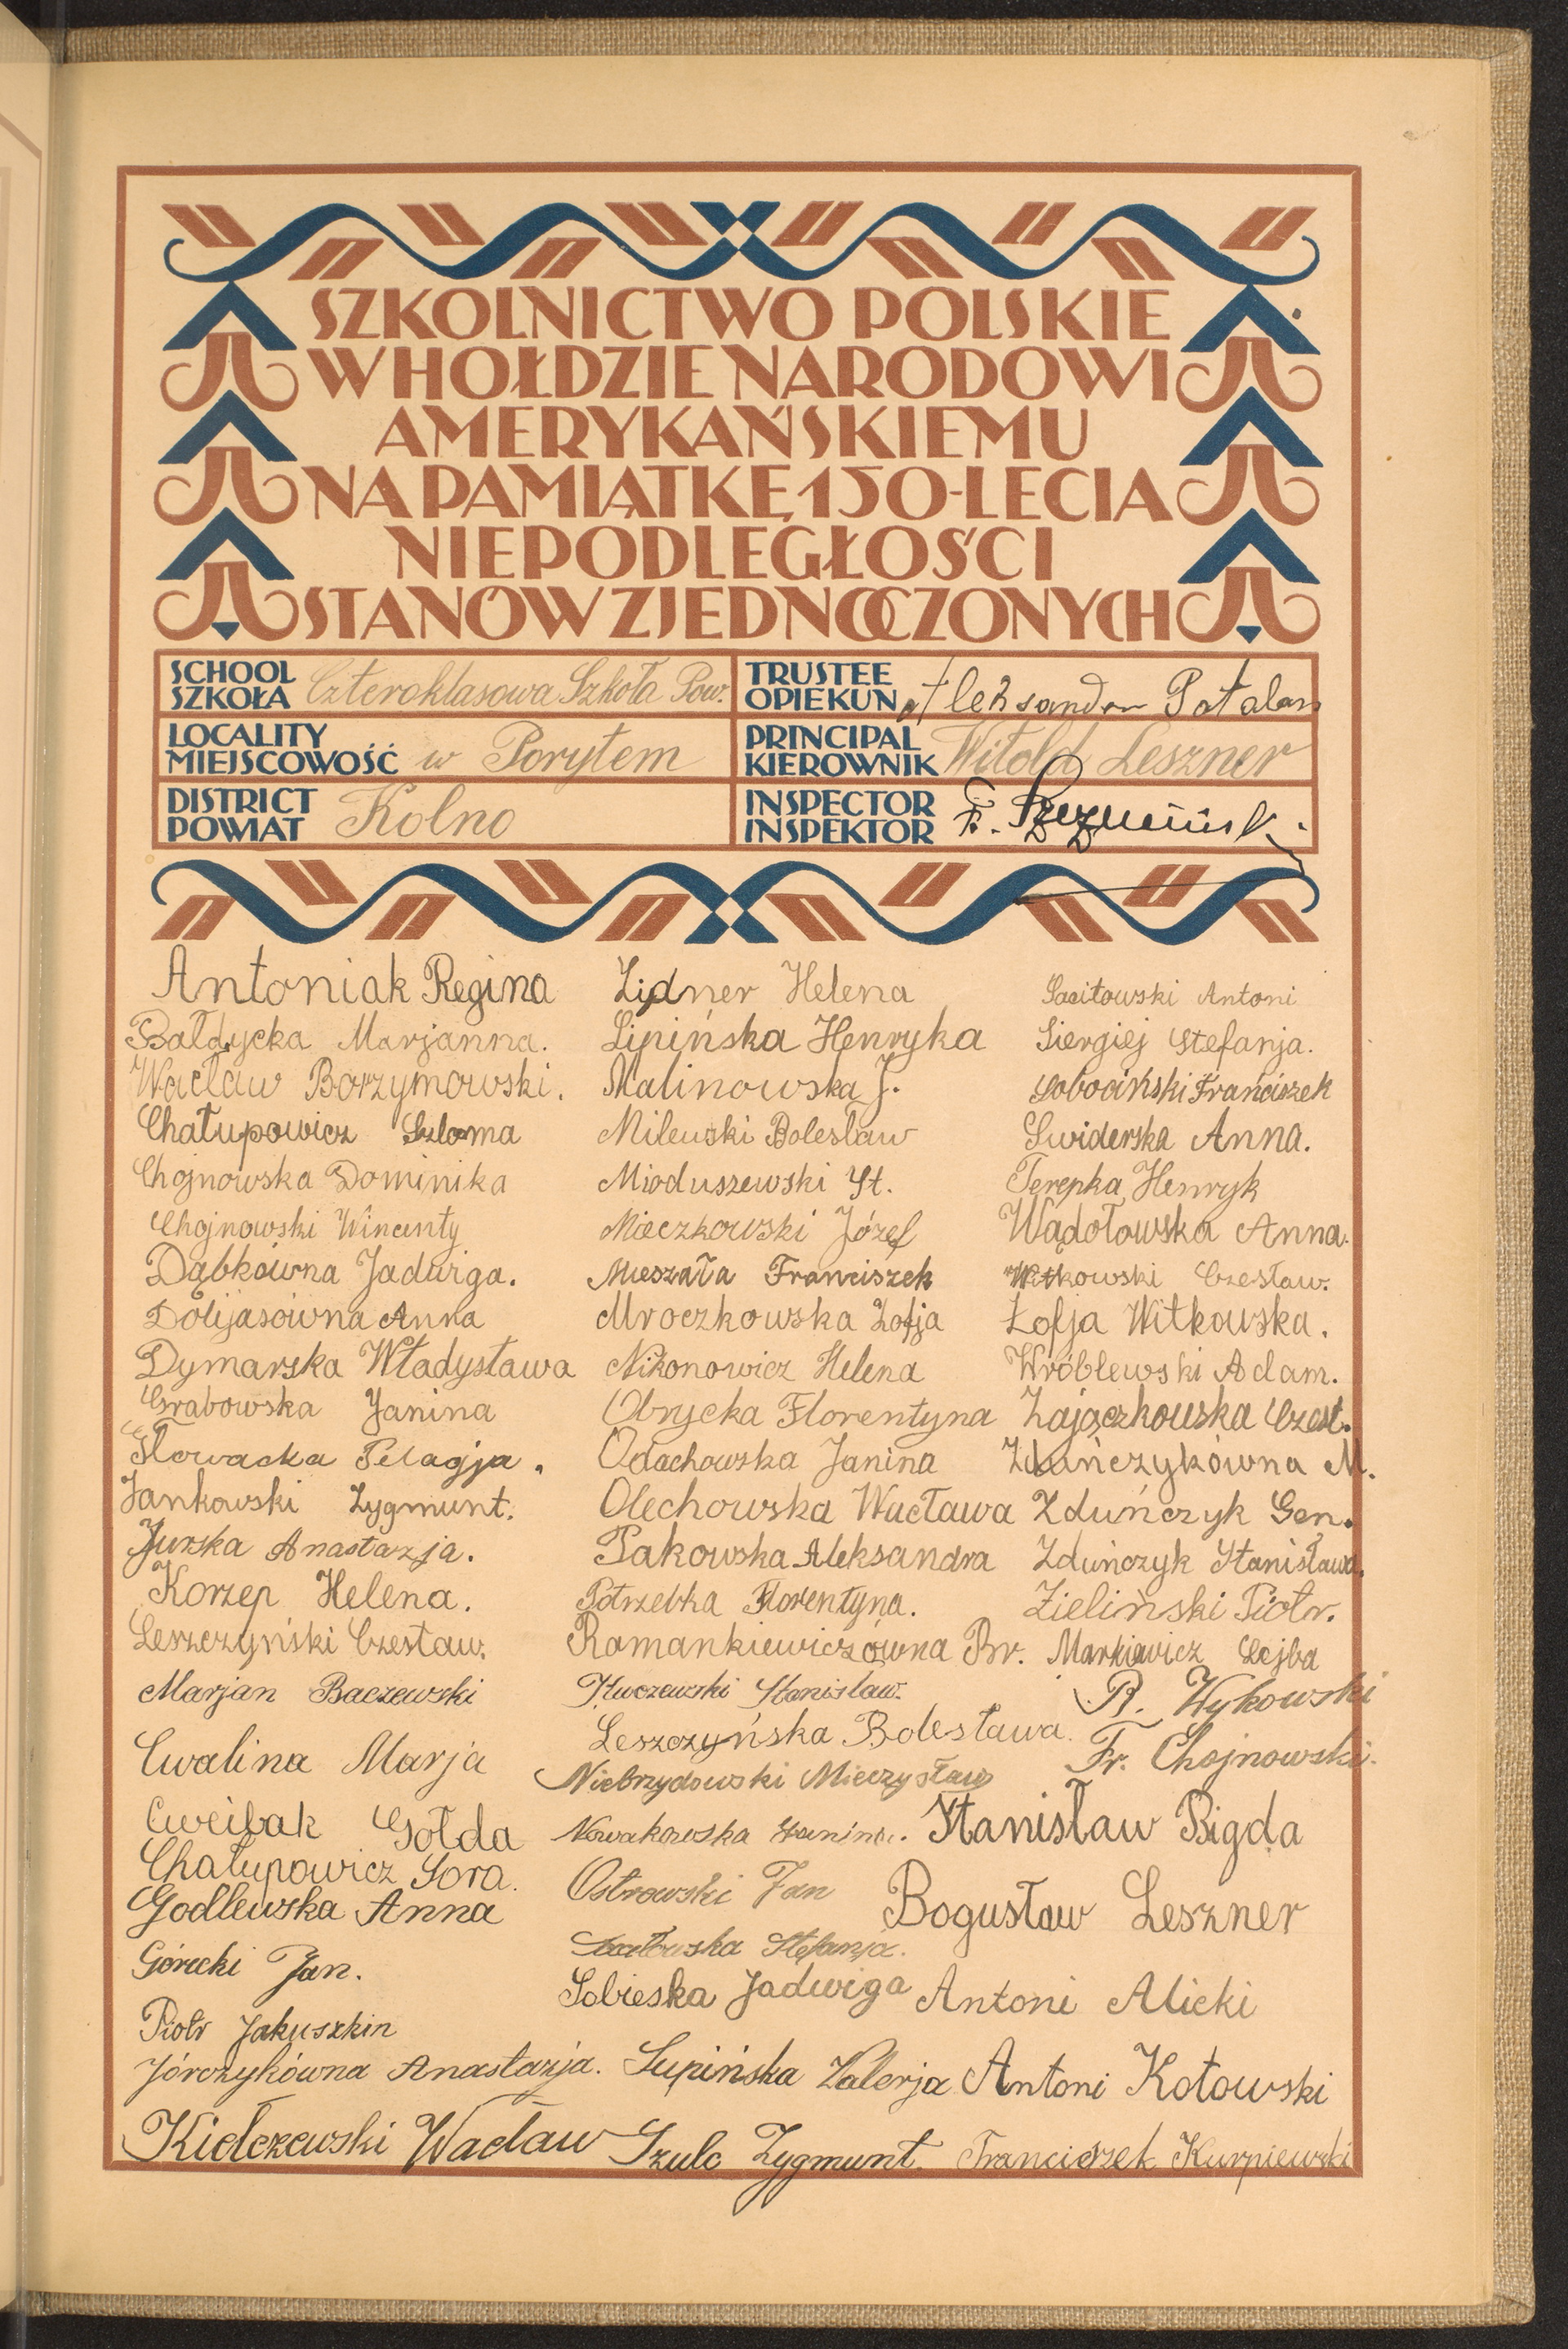 SZKOLNICTWO POLSKIE
W HOŁDZIE NARODOWI
AMERYKAŃSKIEMU
NA PAMIĄTKĘ 150-LECIA
NIEPODLEGŁOŚCI
STANÓW ZJEDNOCZONYCH
SCHOOL
SZKOŁA
Czteroklasowa Szkoła Pow.
LOCALITY
MIEJSCOWOŚĆ
w Porytem
DISTRICT
POWIAT
Kolno
TRUSTEE
OPIEKUN
Aleksander Patalan
PRINCIPAL
KIEROWNIK
Witold Leszner
INSPECTOR
INSPEKTOR
F.
Antoniak Regina
Bałdycka Marjanna.
Wacław Borzymowski.
Chałupowicz Szloma
Chojnowska Dominika
Chojnowski Wincenty
Dąbkówna Jadwiga.
Dolijasówna Anna
Dymarska Władysława
Grabowska Janina
Głowacka Pelagja.
Jankowski Zygmunt.
Jurska Anastazja.
Korzep Helena.
Leszczyński Czesław.
Marjan Baczewski
Cwalina Marja
Cweibak Gołda
Chałupowicz Sora.
Godlewska Anna
Górecki Jan.
Piotr Jakuszkin
Jórczykówna Anastazja.
Kiełczewski Wacław
Lidner Helena
Lipińska Henryka
Malinowska J.
Milewski Bolesław
Mioduszewski St.
Mieczkowski Józef
Mieszała Franciszek
Mroczkowska Zofja
Nikonowicz Helena
Obrycka Florentyna
Odachowska Janina
Olechowska Wacława
Pakowska Aleksandra
Potrzebka Florentyna.
Ramankiewiczówna Br.
Kluczewski Stanisław.
Leszczyńska Bolesława.
Niebrzydowski Mieczysław
Nowakowska Janina.
Ostrowski Jan
Stefanja.
Sobieska Jadwiga
Supińska Walerja
Szulc Zygmunt.
Antoni
Siergiej Stefanja.
Sobociński Franciszek
Swiderska Anna.
Terepka Henryk
Wądołowska Anna.
Witkowski Czesław.
Zofja Witkowska.
Wróblewski Adam.
Zajączkowska Czesł.
Zduńczykówna M.
Zduńczyk Gen.
Zduńczyk Stanisława.
Zieliński Piotr.
Markiewicz Lejba
R. Wykowski
Fr. Chojnowski.
Stanisław Bigda
Bogusław Leszner
Antoni Alicki
Antoni Kotowski
Franciszek Kurpiewski